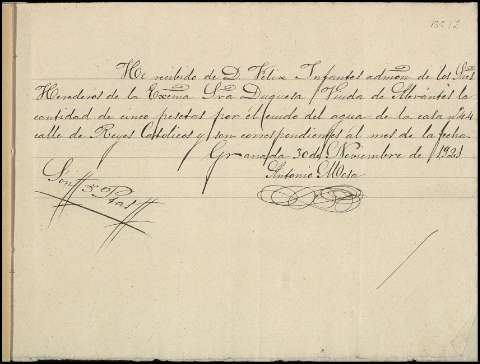 1321 2
He recibido de D. Felix Infantes admon de los Sres
Herederos de la Excma Sra Duquesa Viuda de Abrantes la
cantidad de cinco pesetas por el cuido del agua de la casa nº 44
calle de Reyes Catolicos y son correspondientes al mes de la fecha.
Granada 30 de Noviembre de 1921
Antonio Mesa
Son 5 Ptas